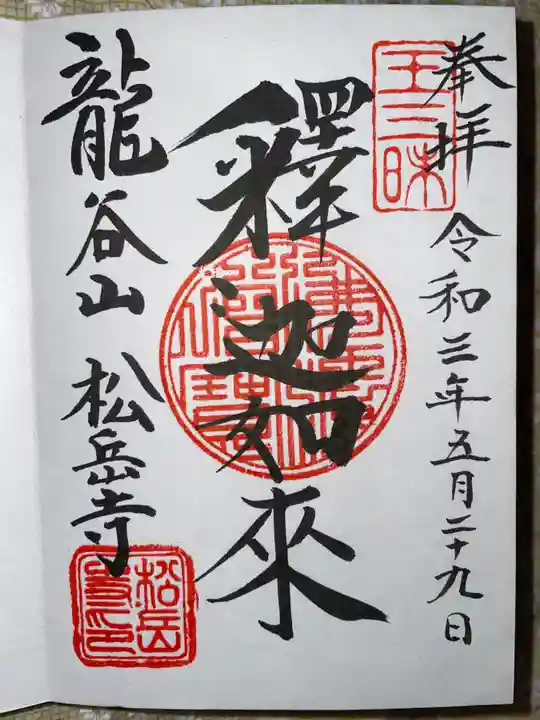 奉拝 令和三年五月二十九日
王三昧
釋迦如來
龍谷山 松岳寺
松岳寺印